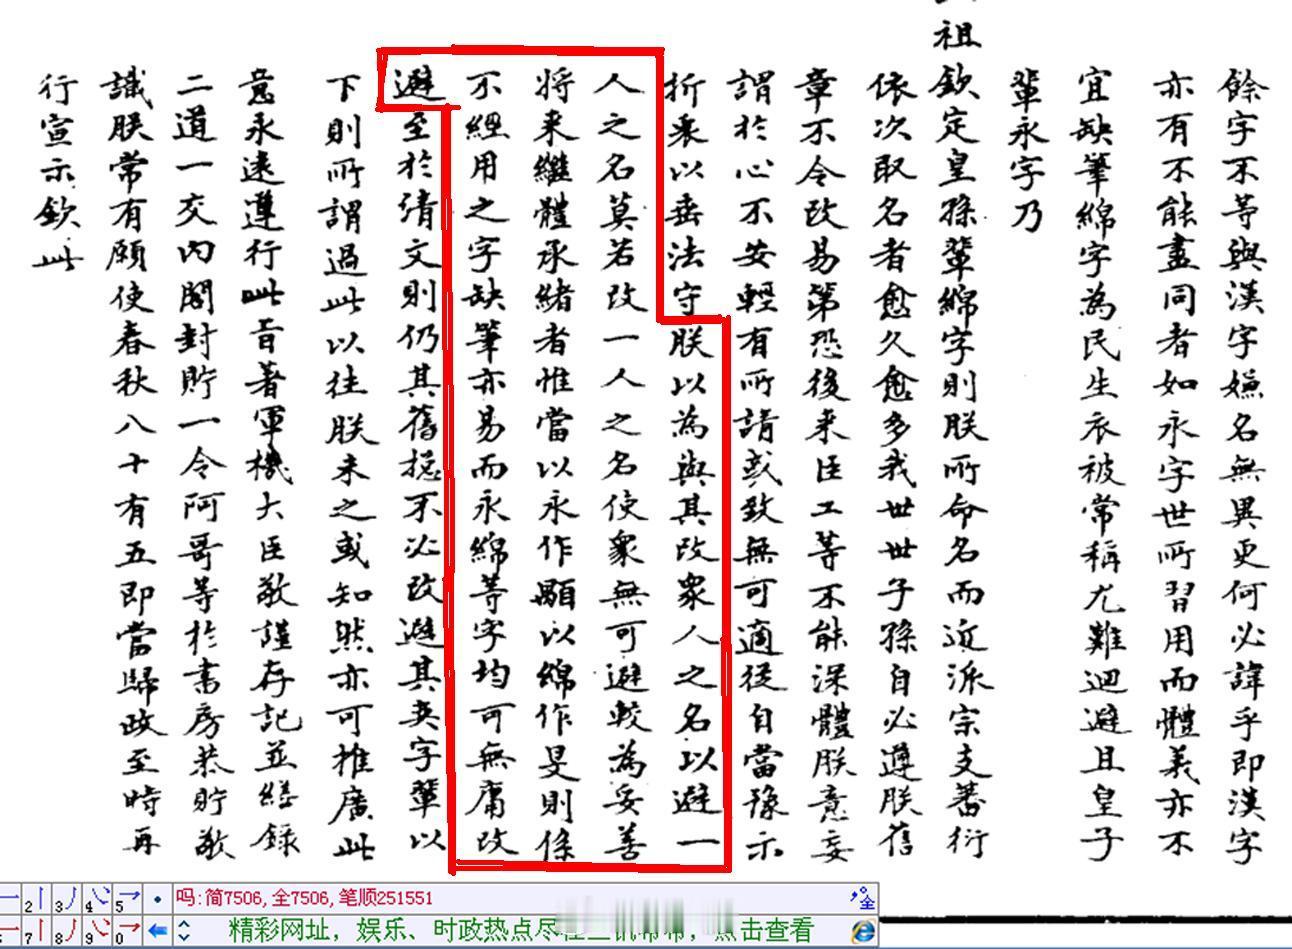 祖
餘字不等與漢字嫌名無異更何必諱乎即漢字
亦有不能盡同者如永字世所習用而體義亦不
宜缺筆綿字為民生衣被常稱尤難迴避且皇子
輩永字乃
欽定皇孫輩綿字則朕所命名而近派宗支蕃衍
依次取名者愈久愈多我世世子孫自必遵朕舊
章不令改易第恐後来臣工等不能深體朕意妄
謂於心不安輕有所請或致無可適從自當豫示
折衷以垂法守朕以為與其改衆人之名以避一
人之名莫若改一人之名使衆無可避較為妥善
将来繼體承緒者惟當以永作顒以綿作旻則係
不經用之字缺筆亦易而永綿等字均可無庸改
避至於清文則仍其舊揔不必改避其奕字輩以
下則所謂過此以往朕未之或知然亦可推廣此
意永遠遵行此旨著軍機大臣敬謹存記並繕録
二道一交内閣封貯一令阿哥等於書房恭貯敬
識朕常有願使春秋八十有五即當歸政至時再
行宣示欽此
2 3 4 5
吗:简7506,全7506,笔顺251551
全
7 8 9 0
精彩网址，娱乐、时政热点尽在
点击查看